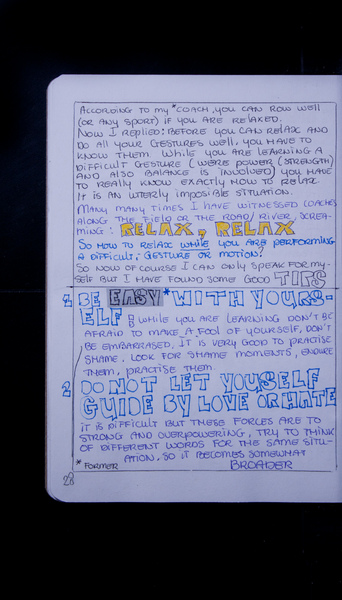 ACCORDING TO MY *COACH, YOU CAN ROW WELL
(OR ANY SPORT) IF YOU ARE RELAXED.
NOW I REPLIED: BEFORE YOU CAN RELAX AND
DO ALL YOUR GESTURES WELL, YOU HAVE TO
KNOW THEM WHILE YOU ARE LEARNING A
DIFFICULT GESTURE (WERE POWER (STRENGTH)
AND ALSO BALANCE IS INVOLVED) YOU HAVE
TO REALLY KNOW EXACTLY HOW TO RELAX
IT IS AN UTTERLY IMPOSIBLE SITUATION.
MANY MANY TIMES I HAVE WITNESSED COACHES
ALONG THE FIELD OR THE ROAD/RIVER, SCREA-
MING: RELAX, RELAX
SO HOW TO RELAX WHILE YOU ARE PERFORMING
A DIFFICULT, GESTURE OR MOTION?
SO NOW OF COURSE I CAN ONLY SPEAK FOR MY-
SELF BUT I HAVE FOUND SOME GOOD TIPS
1 BE EASY* WITH YOURS-
ELF: WHILE YOU ARE LEARNING DON'T BE
AFRAID TO MAKE A FOOL OF YOURSELF, DON'T
BE EMBARRASED, IT IS VERY GOOD TO PRACTISE
SHAME. LOOK FOR SHAME MOMENTS, ENDURE
THEM, PRACTISE THEM
2 DO NOT LET YOUSELF
GUIDE BY LOVE OR HATE
IT IS DIFFICULT BUT THESE FORCES ARE TO
STRONG AND OVERPOWERING, TRY TO THINK
OF DIFFERENT WORDS FOR THE SAME SITU-
ATION, SO IT BECOMES SOMEWHAT
* FORMER BROADER
28